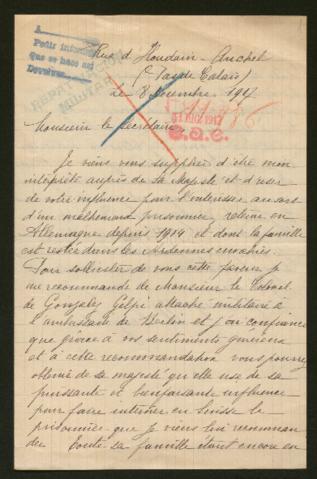 Rue d'Houdain - Auchel
(Pas de Calais)
le 8 Décembre 1917
A
Pedir informes
que se hace así
REPATRIACIÓN
MILITAR
31 DIC 1917
Monsieur le Secrétaire,
Je viens vous supplier d'être mon
interprète auprès de Sa Majesté et d'user
de votre influence pour l'intéresser au sort
d'un malheureux prisonnier, retenu en
Allemagne depuis 1914 et dont la famille
est restée dans les Ardennes envahies.
Pour solliciter de vous cette faveur je
me recommande de Monsieur le Colonel
de Gonzales Gelpi attaché militaire à
l'ambassade de Berlin et j'ai confiance
que grâce à vos sentiments généreux
et à cette recommandation vous pourrez
obtenir de sa majesté qu'elle use de sa
puissante et bienfaisante influence
pour faire interner en Suisse le
prisonnier que je viens lui recomman
der Toute sa famille étant encore en